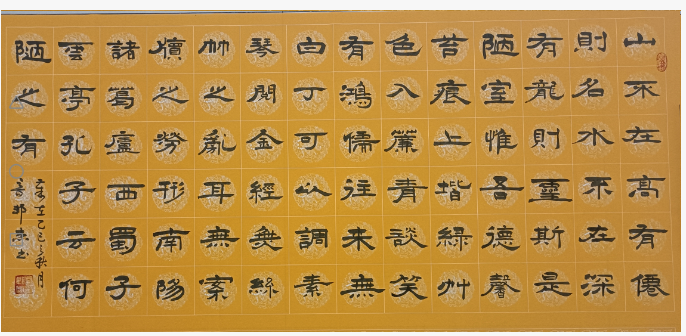 山不在高有僊
則名水不在深
有龍則靈斯是
陋室惟吾德馨
苔痕上堦綠艸
色入簾青談笑
有鴻儒往來無
白丁可以調素
琴閱金經無絲
竹之亂耳無案
牘之勞形南陽
諸葛廬西蜀子
雲亭孔子云何
陋之有
在乙巳之秋月